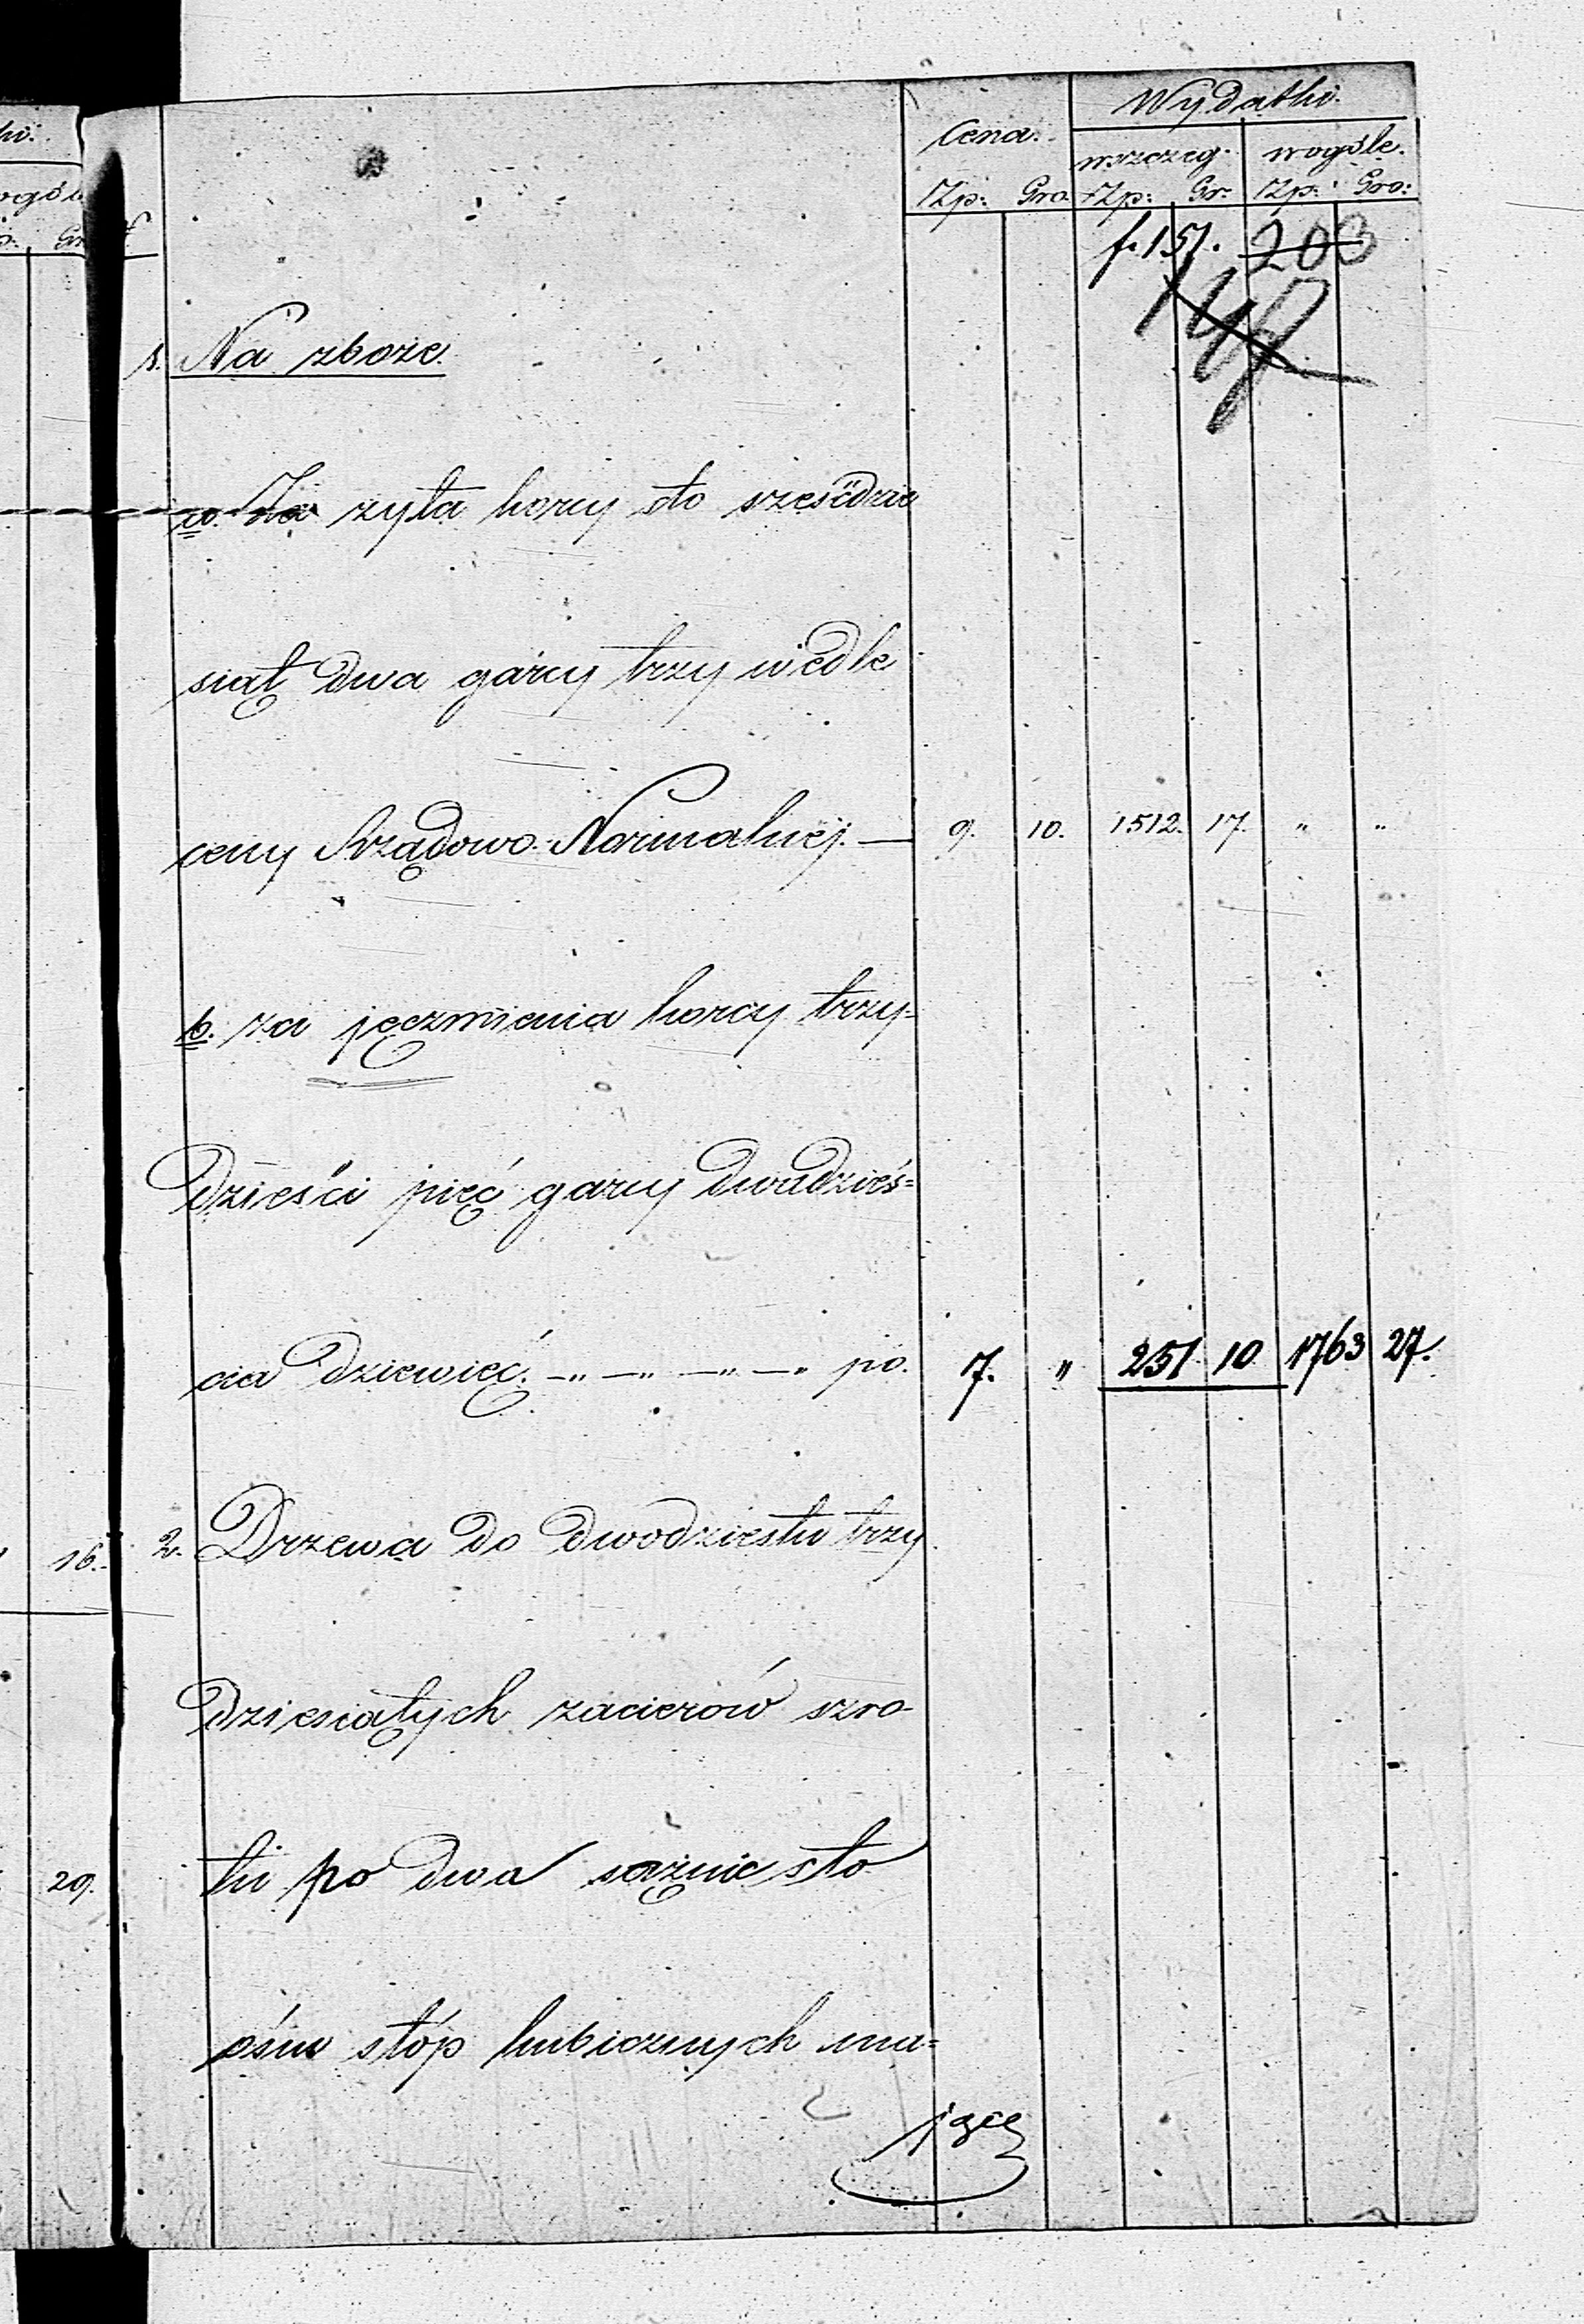 Wydatki.
Cena.
wszczeg. wogóle.
Złp: Gro. Złp: Gr. Złp: Gro:
f. 151. 203
147
1. Na zboże.
a. Za żyta korcy sto sześćdzie
siąt dwa garcy trzy wedle
ceny Rządowo Normalnéj. — 9. 10. 1512. 17. " "
b. za jęczmienia korcy trzy=
dzieści pięć garcy dwadzieś=
cia dziewięć. -„ —„ —„ —„ po. 7. " 251 10 1763 27.
16. 2. Drzewa do dwodziestu trzy
dziesiątych zacierów szro-
29. tu po dwa sążnie sto
ośm stóp kubicznych ma=
jące